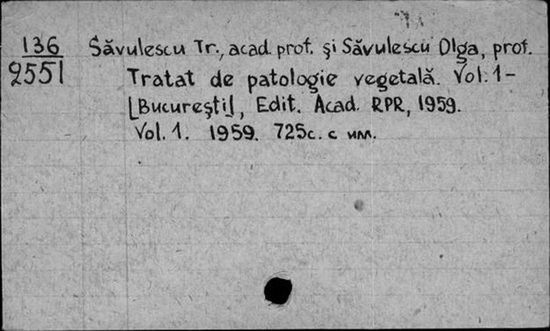 136
2551
Săvulescu Tr., acad. prof. şi Săvulescu Olga, prof.
Tratat de patologie vegetală. Vol. 1-
[Bucureşti], Edit. Acad. RPR, 1959.
Vol. 1. 1959. 725c. с илл.